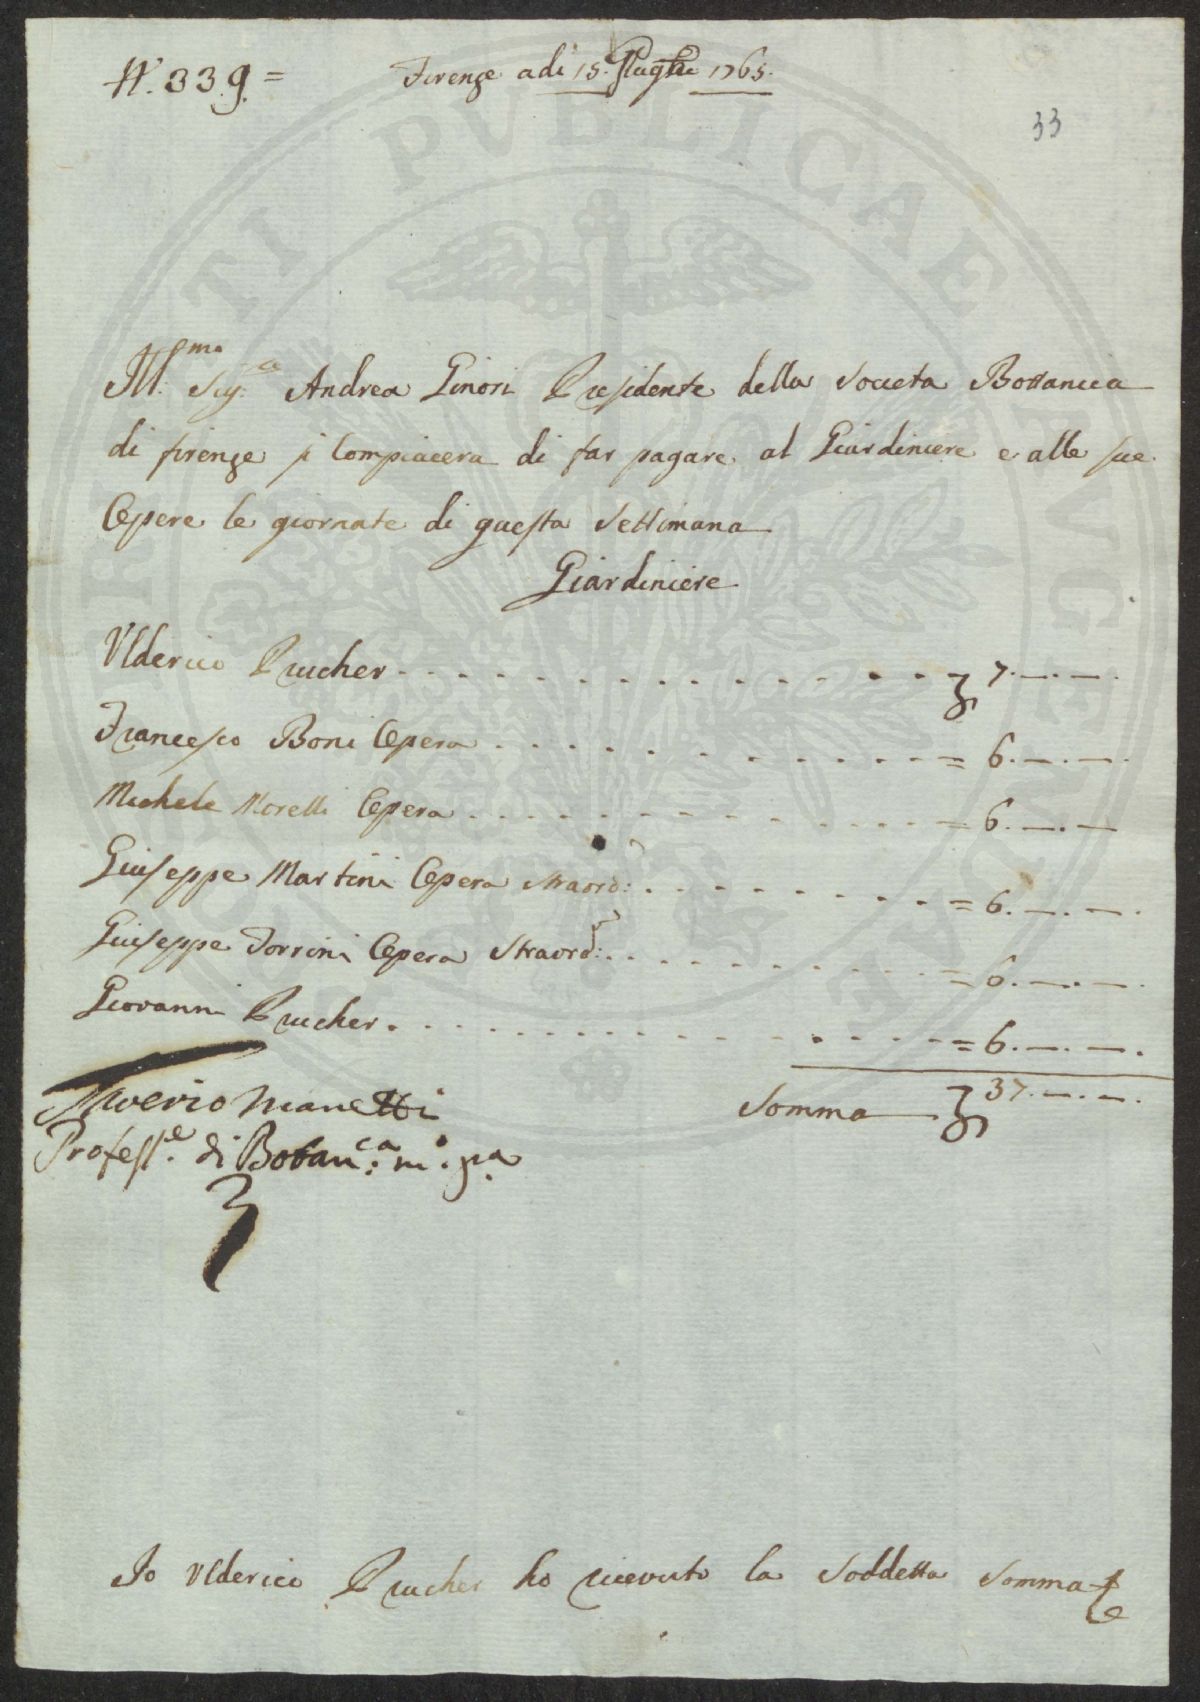 N. 339 =
Firenze adi 15. Luglio 1765.
33
Ill:mo Sig:re Andrea Ginori Presidente della Societa Bottanica
di firenze si Compiacera di far pagare al Giardiniere e alle sue
Opere le giornate di questa Settimana
Giardiniere
Ulderico Prucher - - - - - - - - - - - - - - - 7. — . — .
Francesco Boni Opera - - - - - - - - - - - = 6. — . — .
Michele Morelli Opera - - - - - - - - - - - = 6. — . —
Giuseppe Martini Opera straord: - - - - - - - = 6. — . — .
Giuseppe Torrini Opera Straord: - - - - - - - = 6. — . — .
Giovanni Prucher - - - - - - - - - - - - - = 6. — . — .
Somma — 37. — . — .
Saverio Manetti
Profess.e di Botan:ca m.o p.a
Io Ulderico Prucher ho ricevuto la Soddetta Somma
PUBLICAE